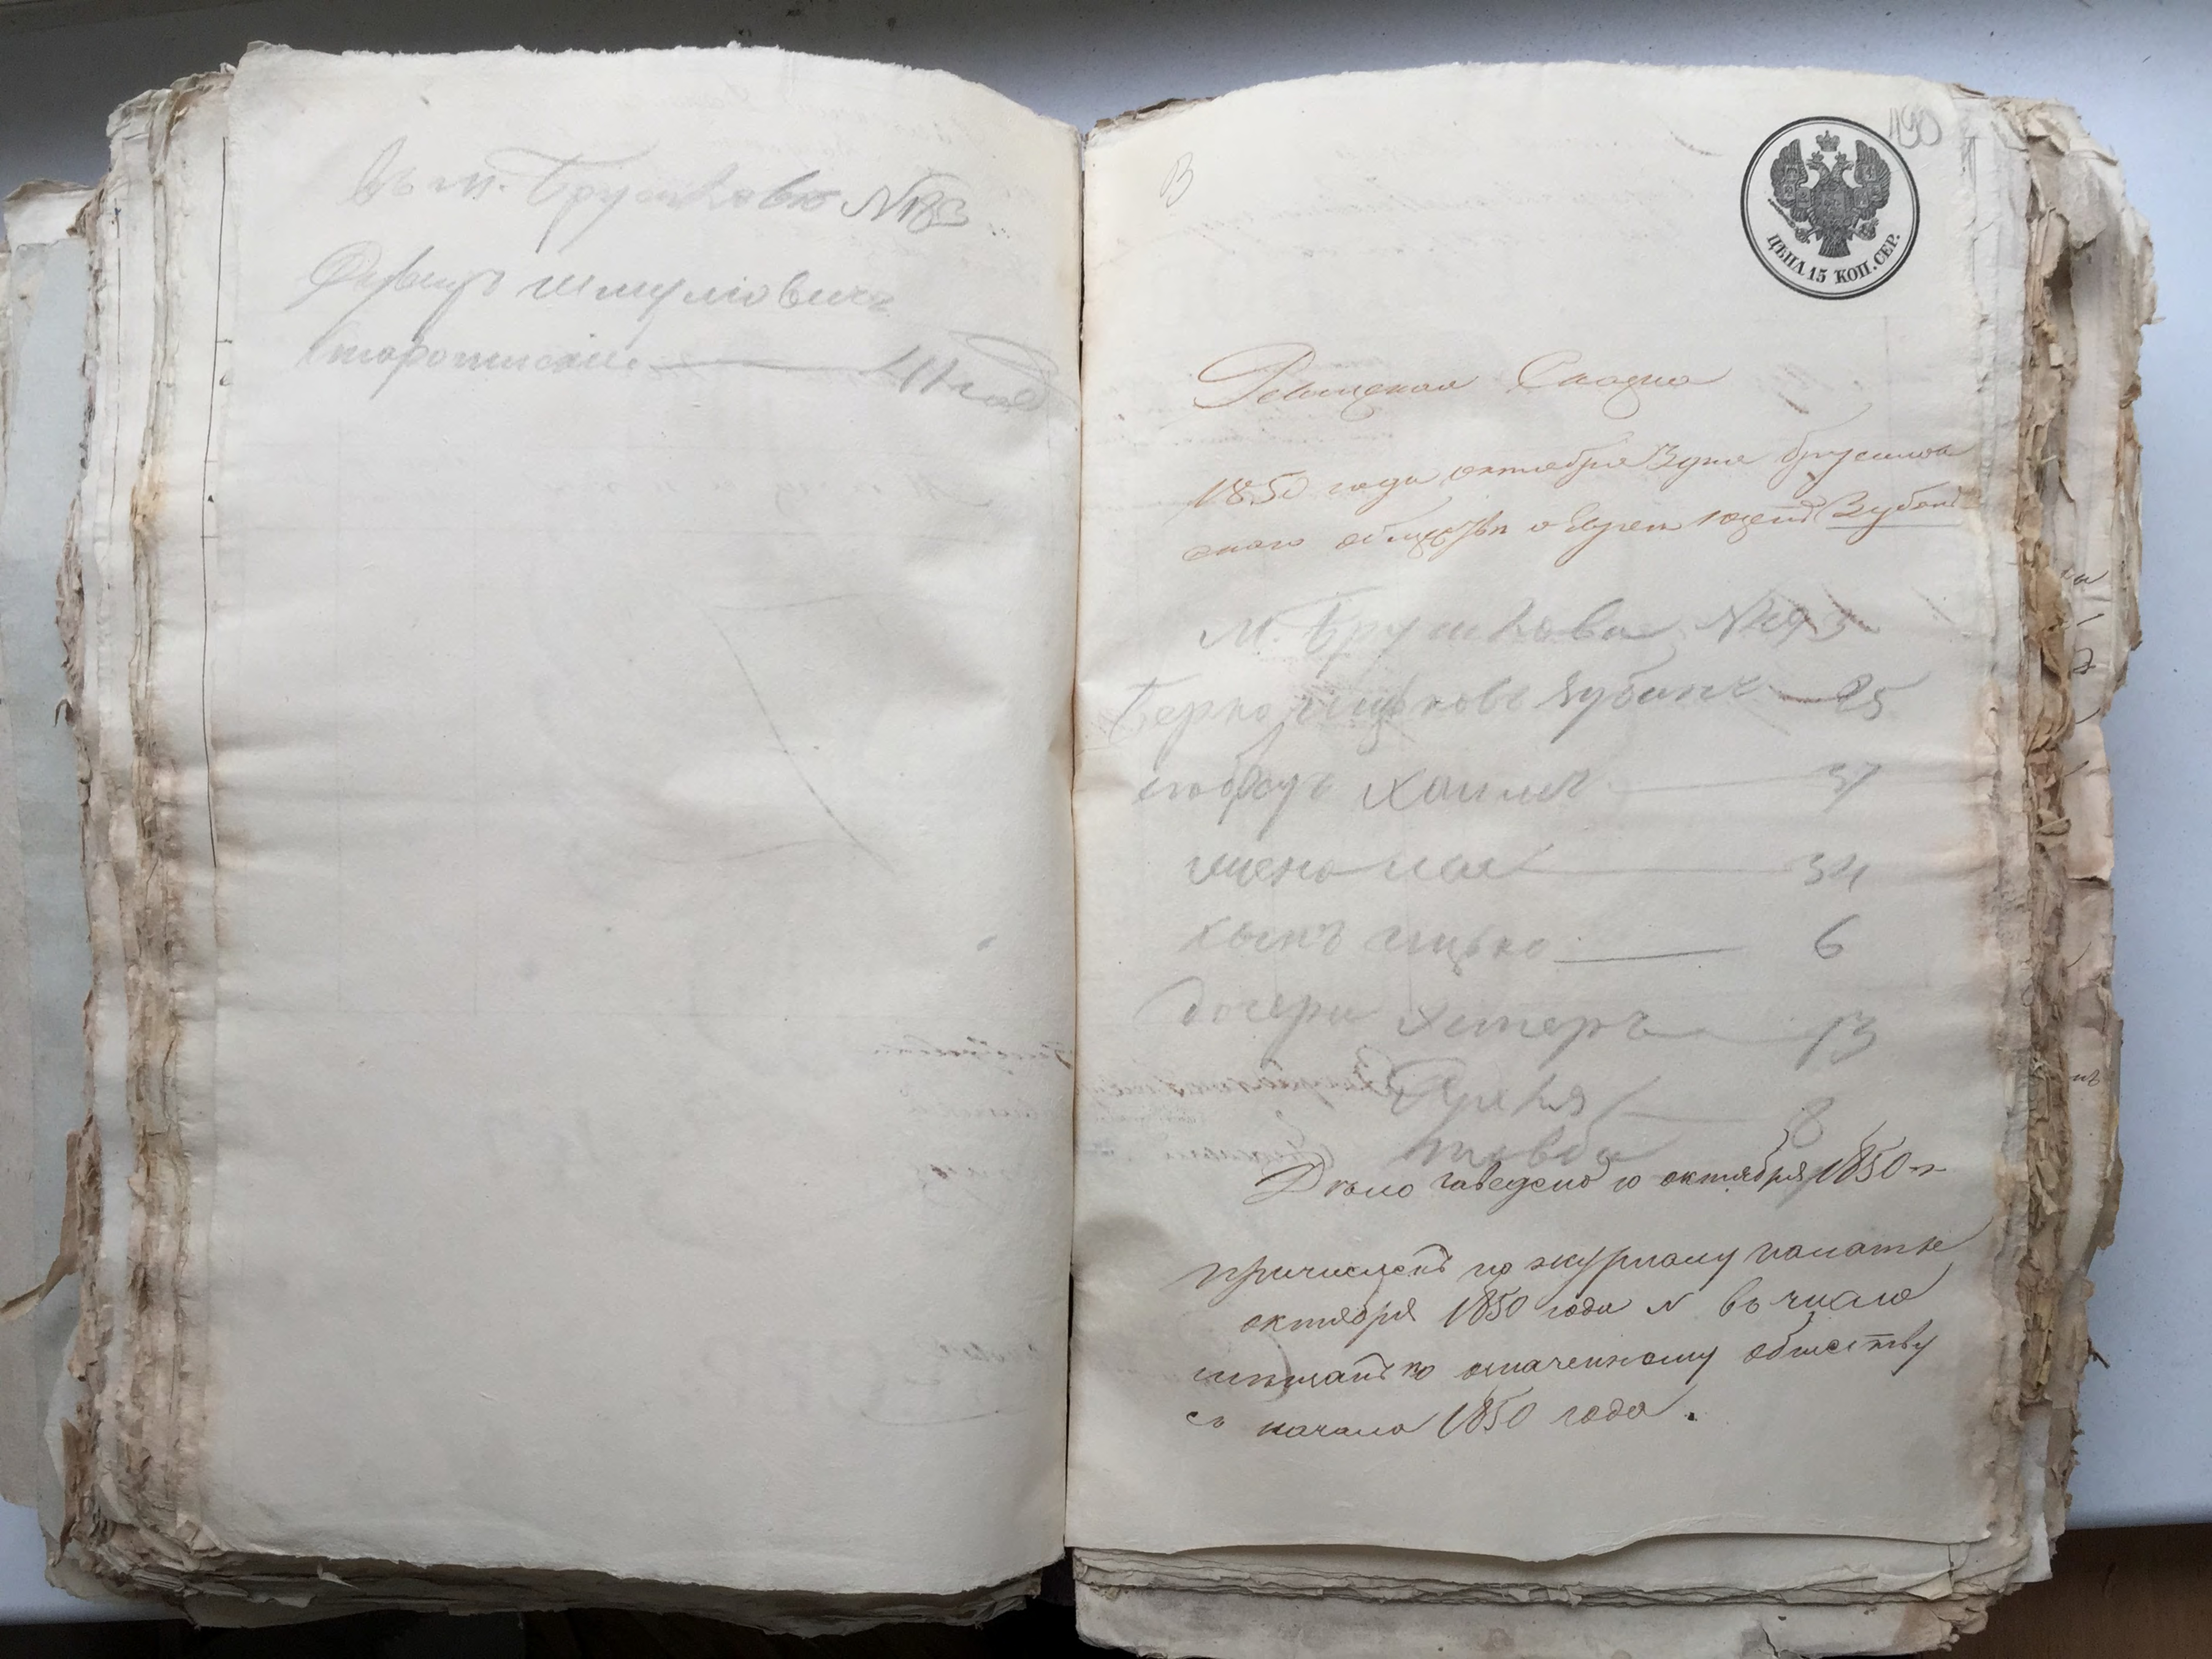 въ м. Брусиловѣ №183
Шмулювичъ
41 год
190
В
ЦѢНА 15 КОП. СЕР.
Ревизская Сказка
1850 года октября 3 дня брусилов
скаго общества о евреи Зубокъ
м. Брусилова №193
Берко Ицковъ Зубокъ 25
Хаимъ 37
жена 34
сынъ ицько 6
дочери Хстеръ 13
8
товба
Дѣло заведено 10 октября 1850 г
причисленъ по журналу палаты
октября 1850 года N въ число
мѣщанъ по означенному обществу
съ начала 1850 года.